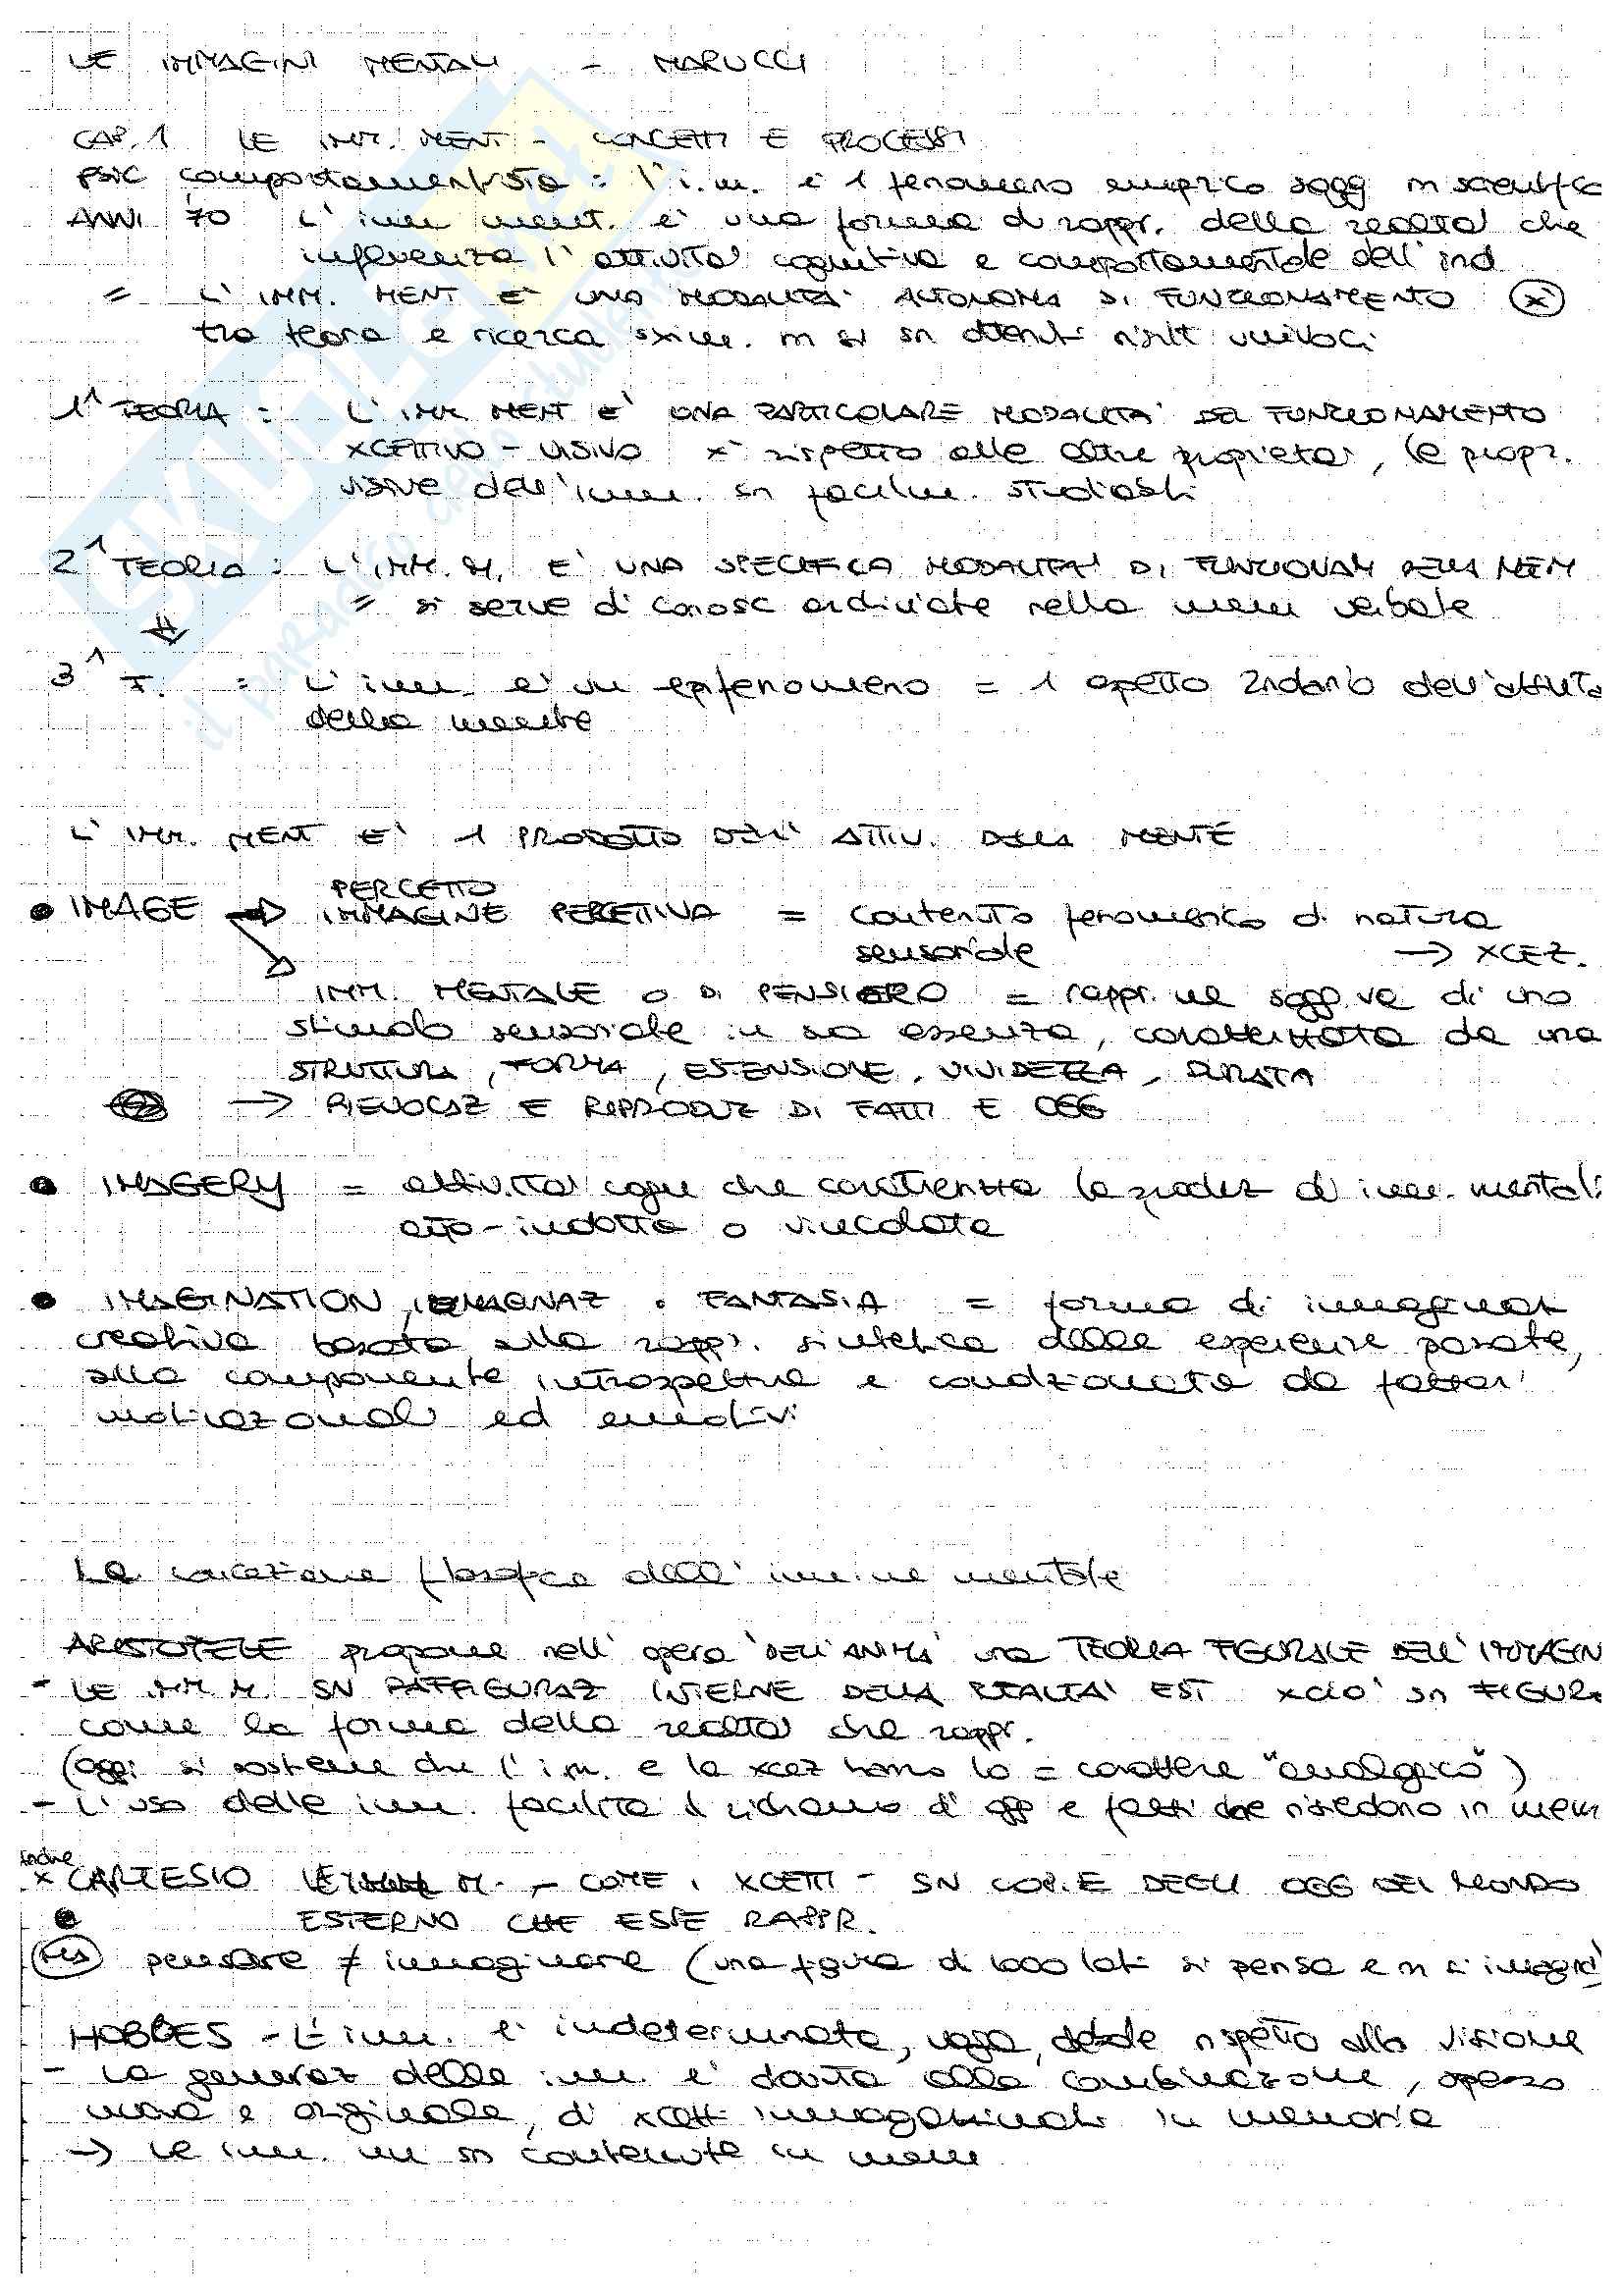 LE IMMAGINI MENTALI - MARUCCI
CAP. 1 LE IMM. MENT - CONCETTI E PROCESSI
PSIC comportamentista : l'i.m. è 1 fenomeno empirico sogg n scientifico
ANNI '70 L'imm ment. è una forma di rappr. della realtà che
influenza l'attività cognitiva e comportamentale dell'ind
= L'IMM. MENT E' UNA MODALITA' AUTONOMA DI FUNZIONAMENTO (x')
tra teoria e ricerca sxim. n si sn ottenuti risult univoci
1^ TEORIA : L'IMM MENT E' UNA PARTICOLARE MODALITA' DEL FUNZIONAMENTO
XCETTIVO - VISIVO x' rispetto alle altre proprietà, le propr.
visive dell'imm. sn facilm. studiabili
2^ TEORIA : L'IMM. M. E' UNA SPECIFICA MODALITA' DI FUNZIONAM DELLA MEM
= si serve di conosc archiviate nella mem verbale
3^ T. : L'imm. è un epifenomeno = 1 aspetto 2ndario dell'attività
della mente
L'IMM. MENT E' 1 PRODOTTO DELL'ATTIV. DELLA MENTE
PERCETTO
• IMAGE → IMMAGINE PERCETTIVA = contenuto fenomenico di natura
sensoriale → XCEZ.
IMM. MENTALE O DI PENSIERO = rappr. ne sogg.va di uno
stimolo sensoriale in sua assenza, caratterizzata da una
STRUTTURA, FORMA, ESTENSIONE, VIVIDEZZA, DURATA
→ RIEVOCAZ E RIPRODUZ DI FATTI E OGG
• IMAGERY = attività cogn che caratterizza la produz di imm. mentali
auto-indotta o vincolata
• IMAGINATION, IMMAGINAZ o FANTASIA = forma di immaginaz
creativa basata sulla rappr. sintetica delle esperienze passate,
sulla componente introspettiva e condizionata da fattori
motivazionali ed emotivi
La concezione filosofica dell'imm.ine mentale
ARISTOTELE propone nell'opera 'DELL'ANIMA' una TEORIA FIGURALE DELL'IMMAGIN
- LE IMM M. SN RAFFIGURAZ INTERNE DELLA REALTA' EST xciò sn FIGURA
come la forma della realtà che rappr.
(oggi si sostiene che l'im. e la xcez hanno lo = carattere "analogico")
- L'uso delle imm. facilita il richiamo di ogg e fatti che risiedono in mem
anche
x CARTESIO LE IMM M. - COME I XCETTI - SN COPIE DEGLI OGG DEL MONDO
ESTERNO CHE ESSE RAPPR.
MA pensare ≠ immaginare (una figura di 1000 lati si pensa e n si imagina)
HOBBES - L'imm. è indeterminata, vaga, debole rispetto alla visione
- La generaz delle imm. è dovuta alla combinazione, spesso
nuova e originale, di xcetti immagazzinati in memoria
→ Le imm. nn sn contenute in mem